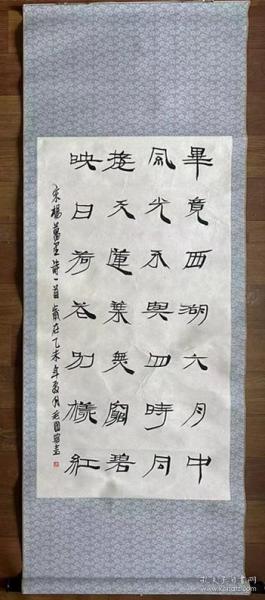 畢竟西湖六月中
風光不與四時同
接天蓮葉無窮碧
映日荷花別樣紅
宋楊萬里詩一首歲在乙未年